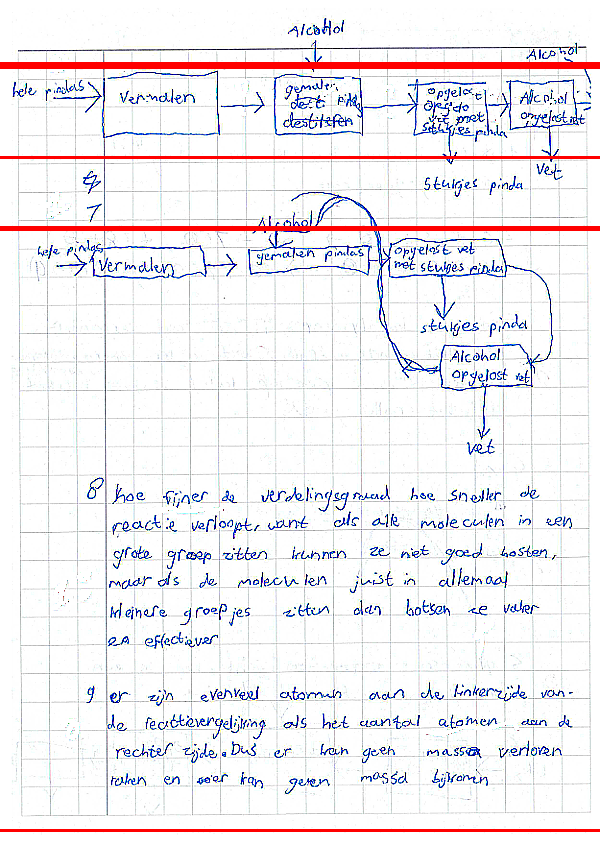 Alcohol
Alcohol
hele pindas
Vermalen
gemalen
pinda
destilleren
opgelost
vet met
stukjes pinda
Alcohol
opgelost vet
stukjes pinda
vet
7
Alcohol
hele pindas
Vermalen
gemalen pindas
opgelost vet
met stukjes pinda
stukjes pinda
Alcohol
opgelost vet
vet
8 hoe fijner de verdelingsgraad hoe sneller de
reactie verloopt, want als alle moleculen in een
grote groep zitten kunnen ze niet goed bosten,
maar als de moleculen juist in allemaal
kleinere groepjes zitten dan botsen ze vaker
en effectiever
9 er zijn evenveel atomen aan de linkerzijde van
de reactievergelijking als het aantal atomen aan de
rechter zijde. Dus er kan geen massa verloren
raken en er kan geren massa bijkomen